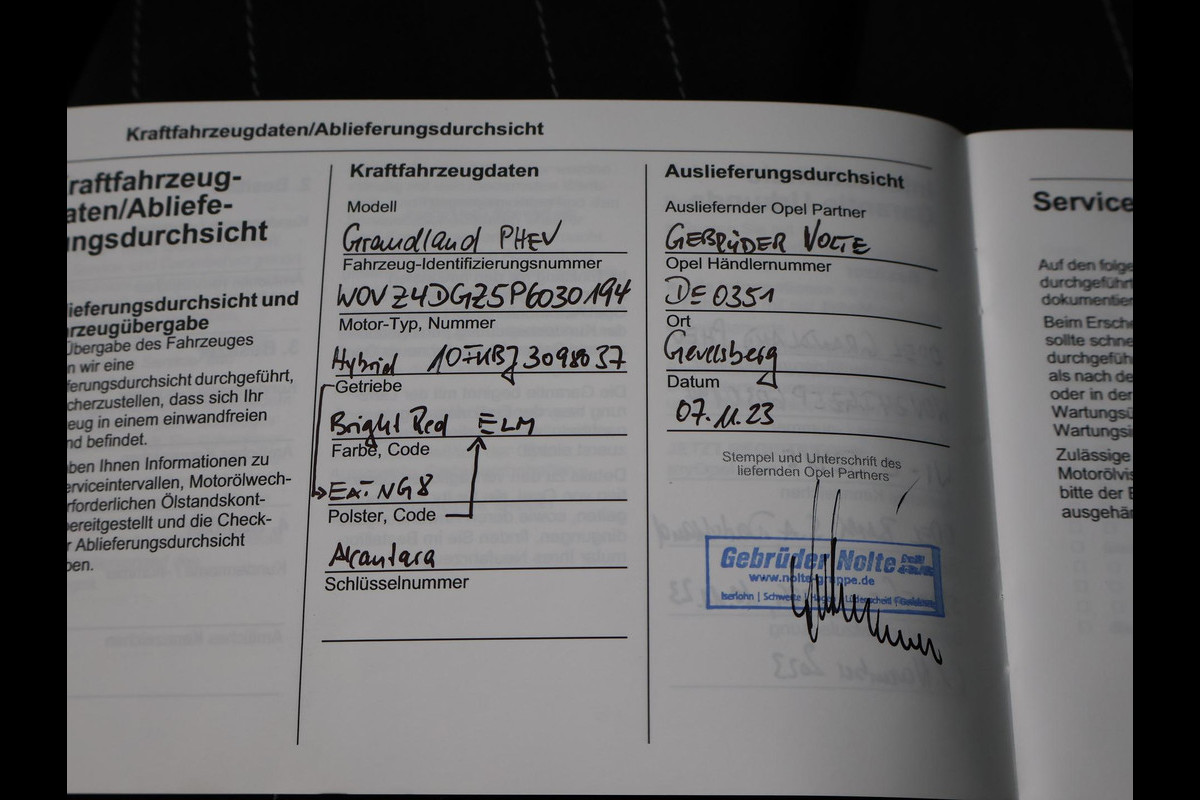 Kraftfahrzeugdaten/Ablieferungsdurchsicht
raftfahrzeug-
aten/Abliefe-
ungsdurchsicht
lieferungsdurchsicht und
rzeugübergabe
Übergabe des Fahrzeuges
n wir eine
ferungsdurchsicht durchgeführt,
cherzustellen, dass sich Ihr
eug in einem einwandfreien
nd befindet.
ben Ihnen Informationen zu
erviceintervallen, Motorölwech-
rforderlichen Ölstandskont-
ereitgestellt und die Check-
r Ablieferungsdurchsicht
ben.
Kraftfahrzeugdaten
Modell
Grandland PHEV
Fahrzeug-Identifizierungsnummer
W0VZ4DGZ5P6030194
Motor-Typ, Nummer
Hybrid
Getriebe
Bright Red ELM
Farbe, Code
NG8
Polster, Code
Alcantara
Schlüsselnummer
Auslieferungsdurchsicht
Ausliefernder Opel Partner
GEBRÜDER NOLTE
Opel Händlernummer
DE 0351
Ort
Gevelsberg
Datum
07.11.23
Stempel und Unterschrift des
liefernden Opel Partners
Gebrüder Nolte
www.nolte-gruppe.de
Iserlohn | Schwerte
Service
Auf den folge
durchgeführt
dokumentier
Beim Ersche
sollte schne
durchgefüh
als nach de
oder in der
Wartungsü
Wartungsin
Zulässige
Motorölvis
bitte der B
ausgehän